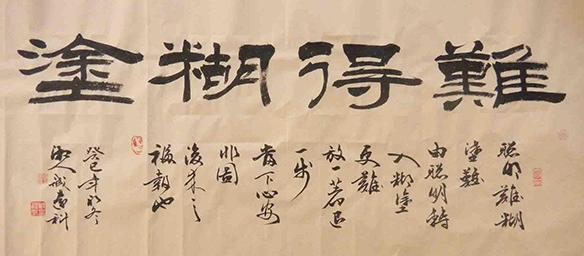 難得糊塗
聰明難糊
塗難
由聰明轉
入糊塗
更難
放一著退
一步
當下心安
非圖
後來之
福報也
癸巳年初冬